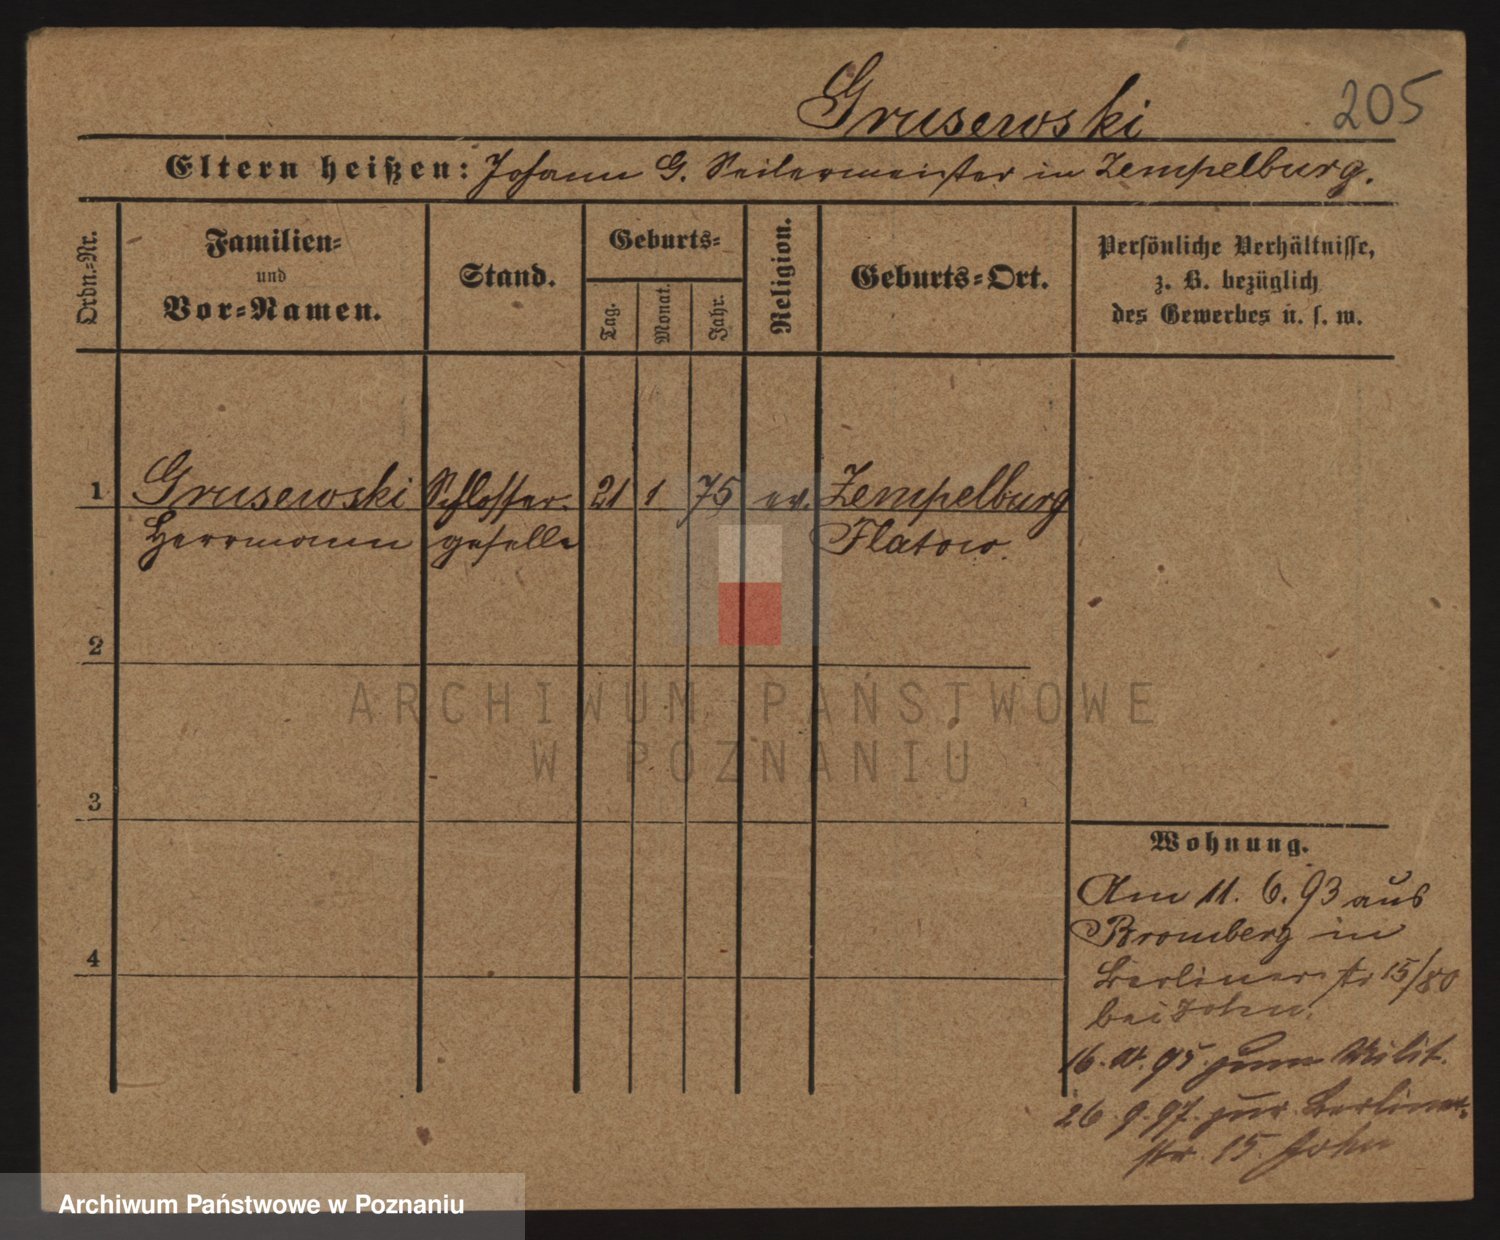 Grusewski 205
Eltern heißen: Johann G. Seilermeister in Zempelburg.
Ordn.-Nr.
Familien-
und
Vor-Namen.
Stand.
Geburts-
Tag.
Monat.
Jahr.
Religion.
Geburts-Ort.
Persönliche Verhältnisse,
z. B. bezüglich
des Gewerbes u. s. w.
1 Grusewski Schlosser- 21 1 75 ev. Zempelburg
Herrmann geselle Flatow.
2
3
4
Wohnung.
Am 11. 6. 93 aus
Bromberg in
Berliner str 15/80
bei John.
16. 95 zum Milit.
26. 9. 97. zur Berliner-
str. 15. John
ARCHIWUM PAŃSTWOWE
W POZNANIU
Archiwum Państwowe w Poznaniu